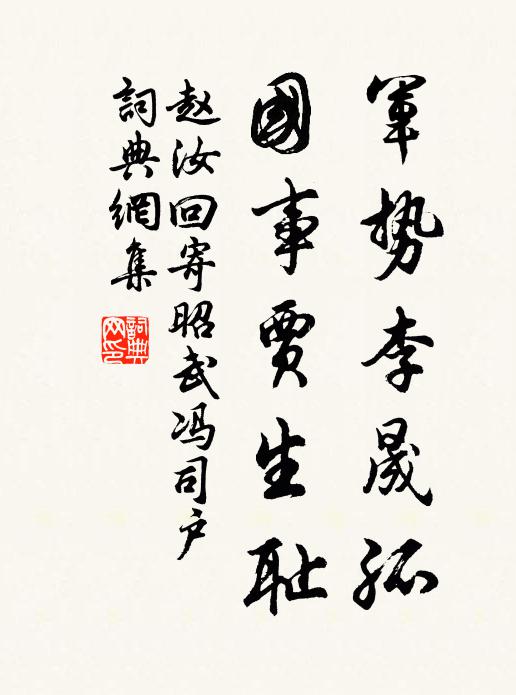 軍势李晟孤
國事賈生耻
赵汝回寄昭武冯司户
詞典網集
詞典
网印